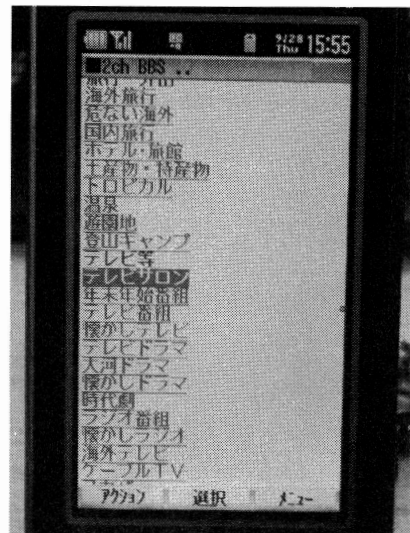 9/28 Thu 15:55
■2ch BBS ..
海外旅行
危ない海外
国内旅行
ホテル・旅館
土産物・特産物
トロピカル
温泉
遊園地
登山キャンプ
テレビ等
テレビサロン
年末年始番組
テレビ番組
懐かしテレビ
テレビドラマ
大河ドラマ
懐かしドラマ
時代劇
ラジオ番組
懐かしラジオ
海外テレビ
ケーブルTV
アクション 選択 メニュー